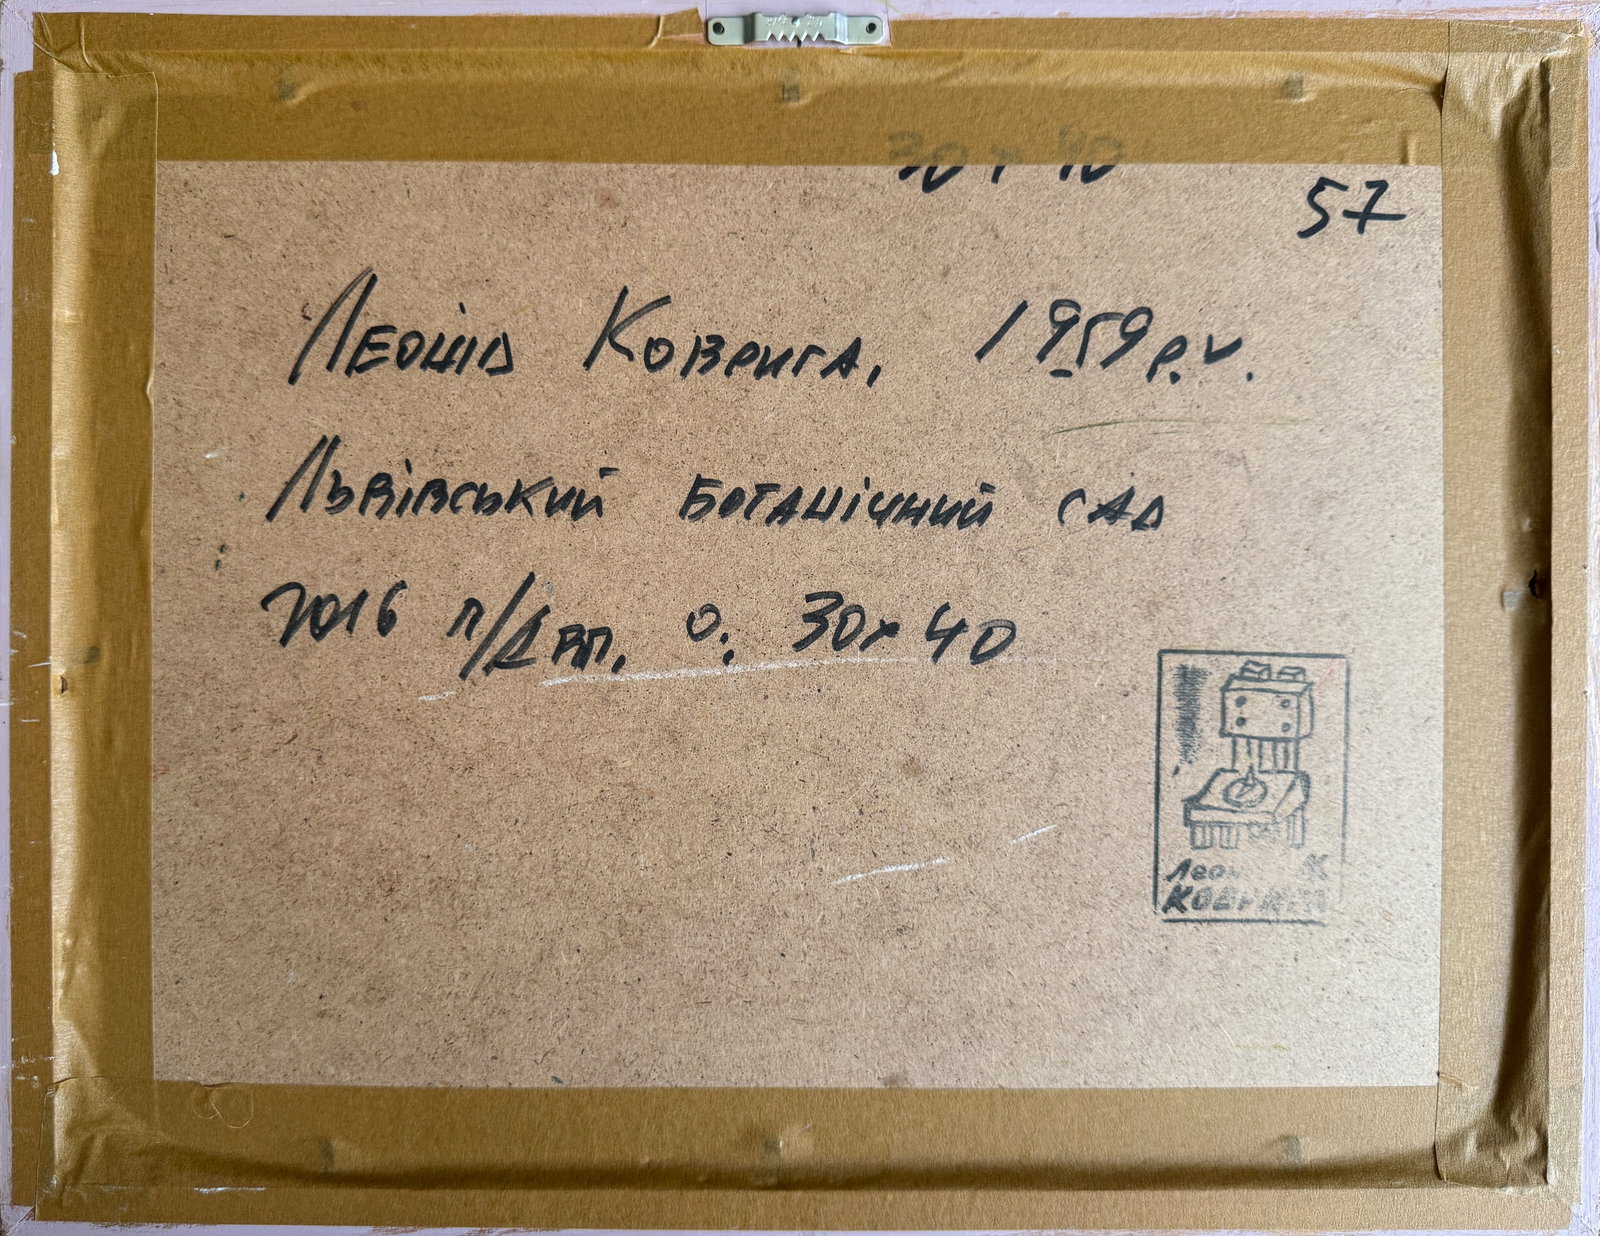 30 x 40
57
Леонід Коврига. 1959 р.н.
Львівський ботанічний сад
2016 п/двп. о. 30x40
Леонід
КОВРИГА